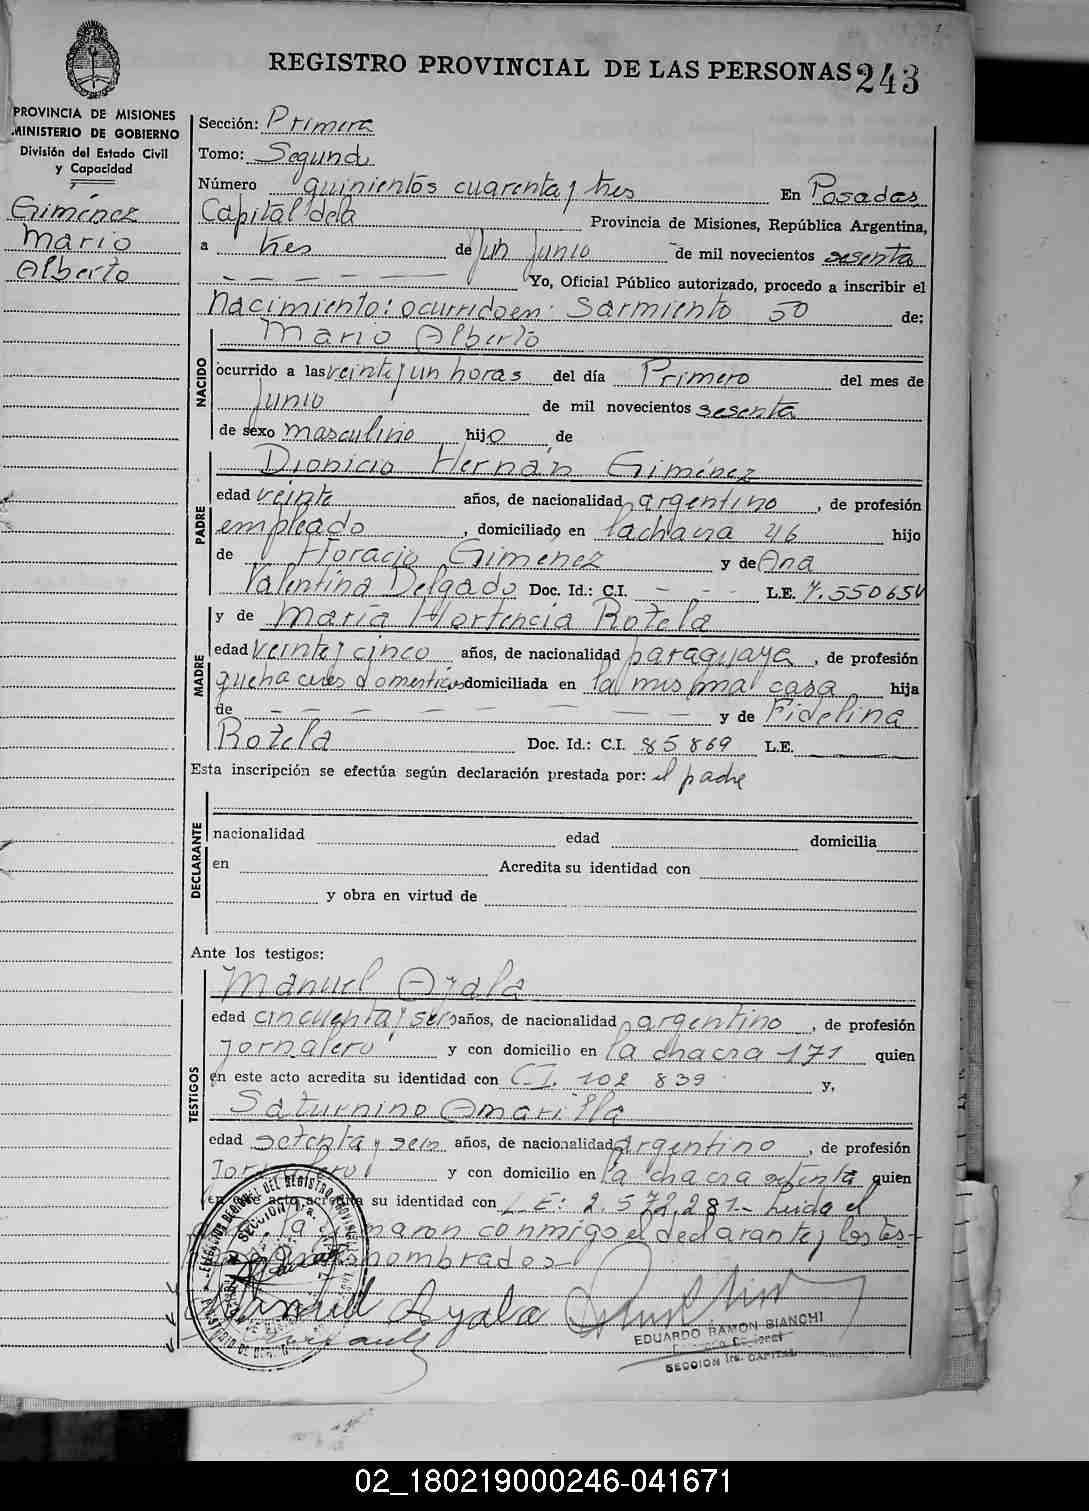 REGISTRO PROVINCIAL DE LAS PERSONAS 243
PROVINCIA DE MISIONES
MINISTERIO DE GOBIERNO
División del Estado Civil
y Capacidad
Giménez
Mario
Alberto
Sección: Primera
Tomo: Segundo
Número quinientos cuarenta y tres En Posadas
Capital de la Provincia de Misiones, República Argentina,
a tres de Junio de mil novecientos sesenta
Yo, Oficial Público autorizado, procedo a inscribir el
nacimiento: ocurrido en: Sarmiento 50 de:
NACIDO
Mario Alberto
ocurrido a las veinte y un horas del día Primero del mes de
Junio de mil novecientos sesenta
de sexo masculino hijo de
PADRE
Dionicio Hernán Giménez
edad veinte años, de nacionalidad argentino, de profesión
empleado, domiciliado en la chacra 46 hijo
de Horacio Gimenez y de Ana
Valentina Delgado Doc. Id.: C.I. - - - L.E. 7.550654
y de María Hortencia Rotela
MADRE
edad veinte y cinco años, de nacionalidad paraguaya, de profesión
quehaceres domesticos domiciliada en la misma casa hija
de - - - - - - - y de Fidelina
Rotela Doc. Id.: C.I. 85869 L.E.
Esta inscripción se efectúa según declaración prestada por: el padre
DECLARANTE
nacionalidad edad domicilia
en Acredita su identidad con
y obra en virtud de
Ante los testigos:
TESTIGOS
Manuel Ayala
edad cincuenta y seis años, de nacionalidad argentino, de profesión
jornalero y con domicilio en la chacra 171 quien
en este acto acredita su identidad con C.I. 102 839 y,
Saturnino Amarilla
edad setenta y seis años, de nacionalidad argentino, de profesión
y con domicilio en la chacra setenta quien
en este acto acredita su identidad con L.E: 2.572,281- Leida el
conmigo el declarante y los tes-
nombrados
Manuel Ayala
EDUARDO RAMON BIANCHI
SECCION 1ra. CAPITAL
02_180219000246-041671